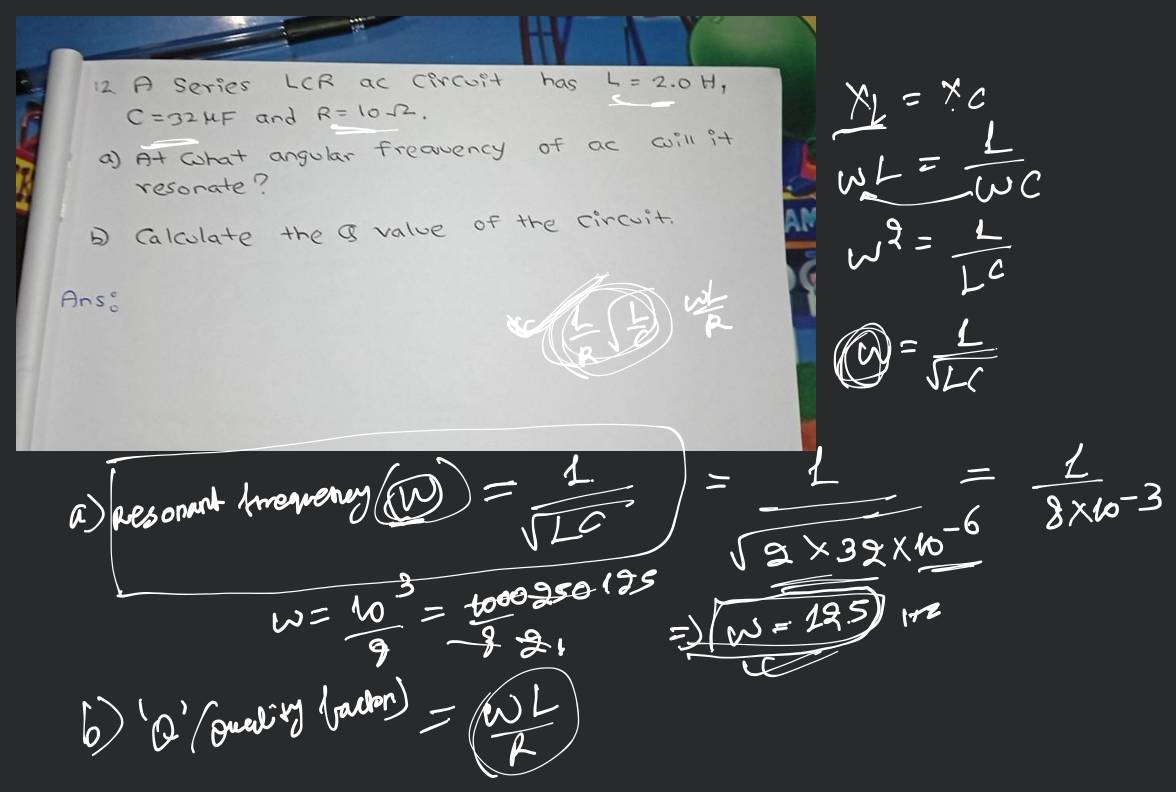 12 A Series LCR ac circuit has L = 2.0 H,
C = 32 μF and R = 10 Ω.
a) At what angular freavency of ac will it
resonate?
b) Calculate the Q value of the circuit.
Ans:
1/R √(L/C) WL/R
XL = XC
WL = 1/WC
W² = 1/LC
W = 1/√LC
a) Resonant frequency (W) = 1/√LC = 1/√(2 × 32 × 10⁻⁶) = 1/(8×10⁻³)
W = 10³/8 = 1000/8 250/2 125 ⇒ W = 125 Hz
b) 'Q' (quality factor) = WL/R